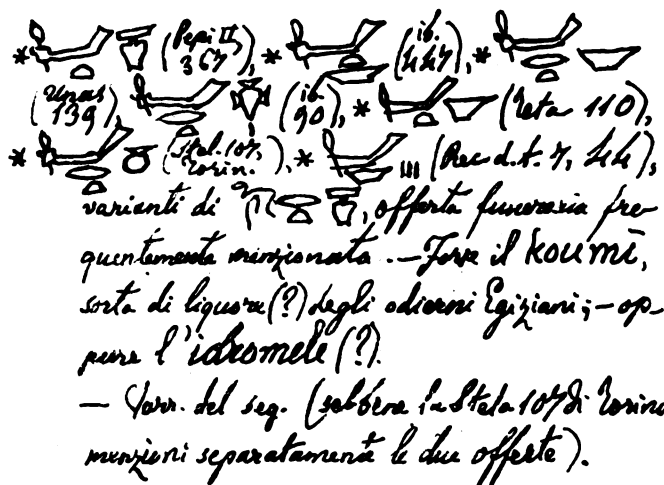 * (Pepi II, 367), * (ib. 447), *
(Unas 139), (ib. 90), * (Teta 110),
* (Stel. 107, Torin.), * (Rec. d. t. 7, 44),
varianti di , offerta funeraria fre
quentemente menzionata. — Forse il koumī,
sorta di liquore (?) degli odierni Egiziani; — op-
pure l'idromele (?).
— Varr. del seg. (sebbene la Stela 107 di Torino
menzioni separatamente le due offerte).